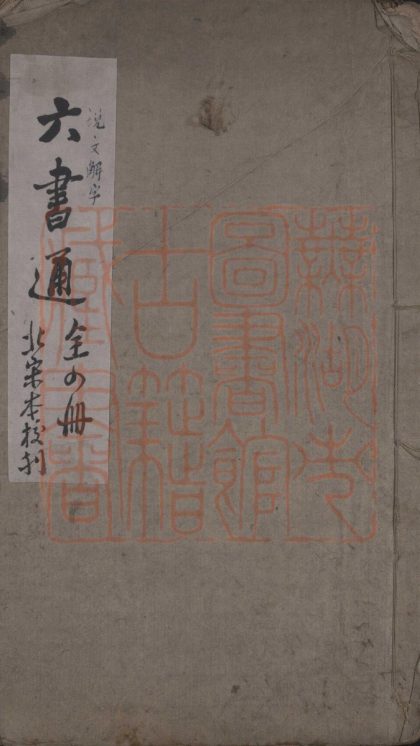 說文解字
六書通 全四冊
北宋本校刊
蕪湖市
圖書館
古籍
藏書